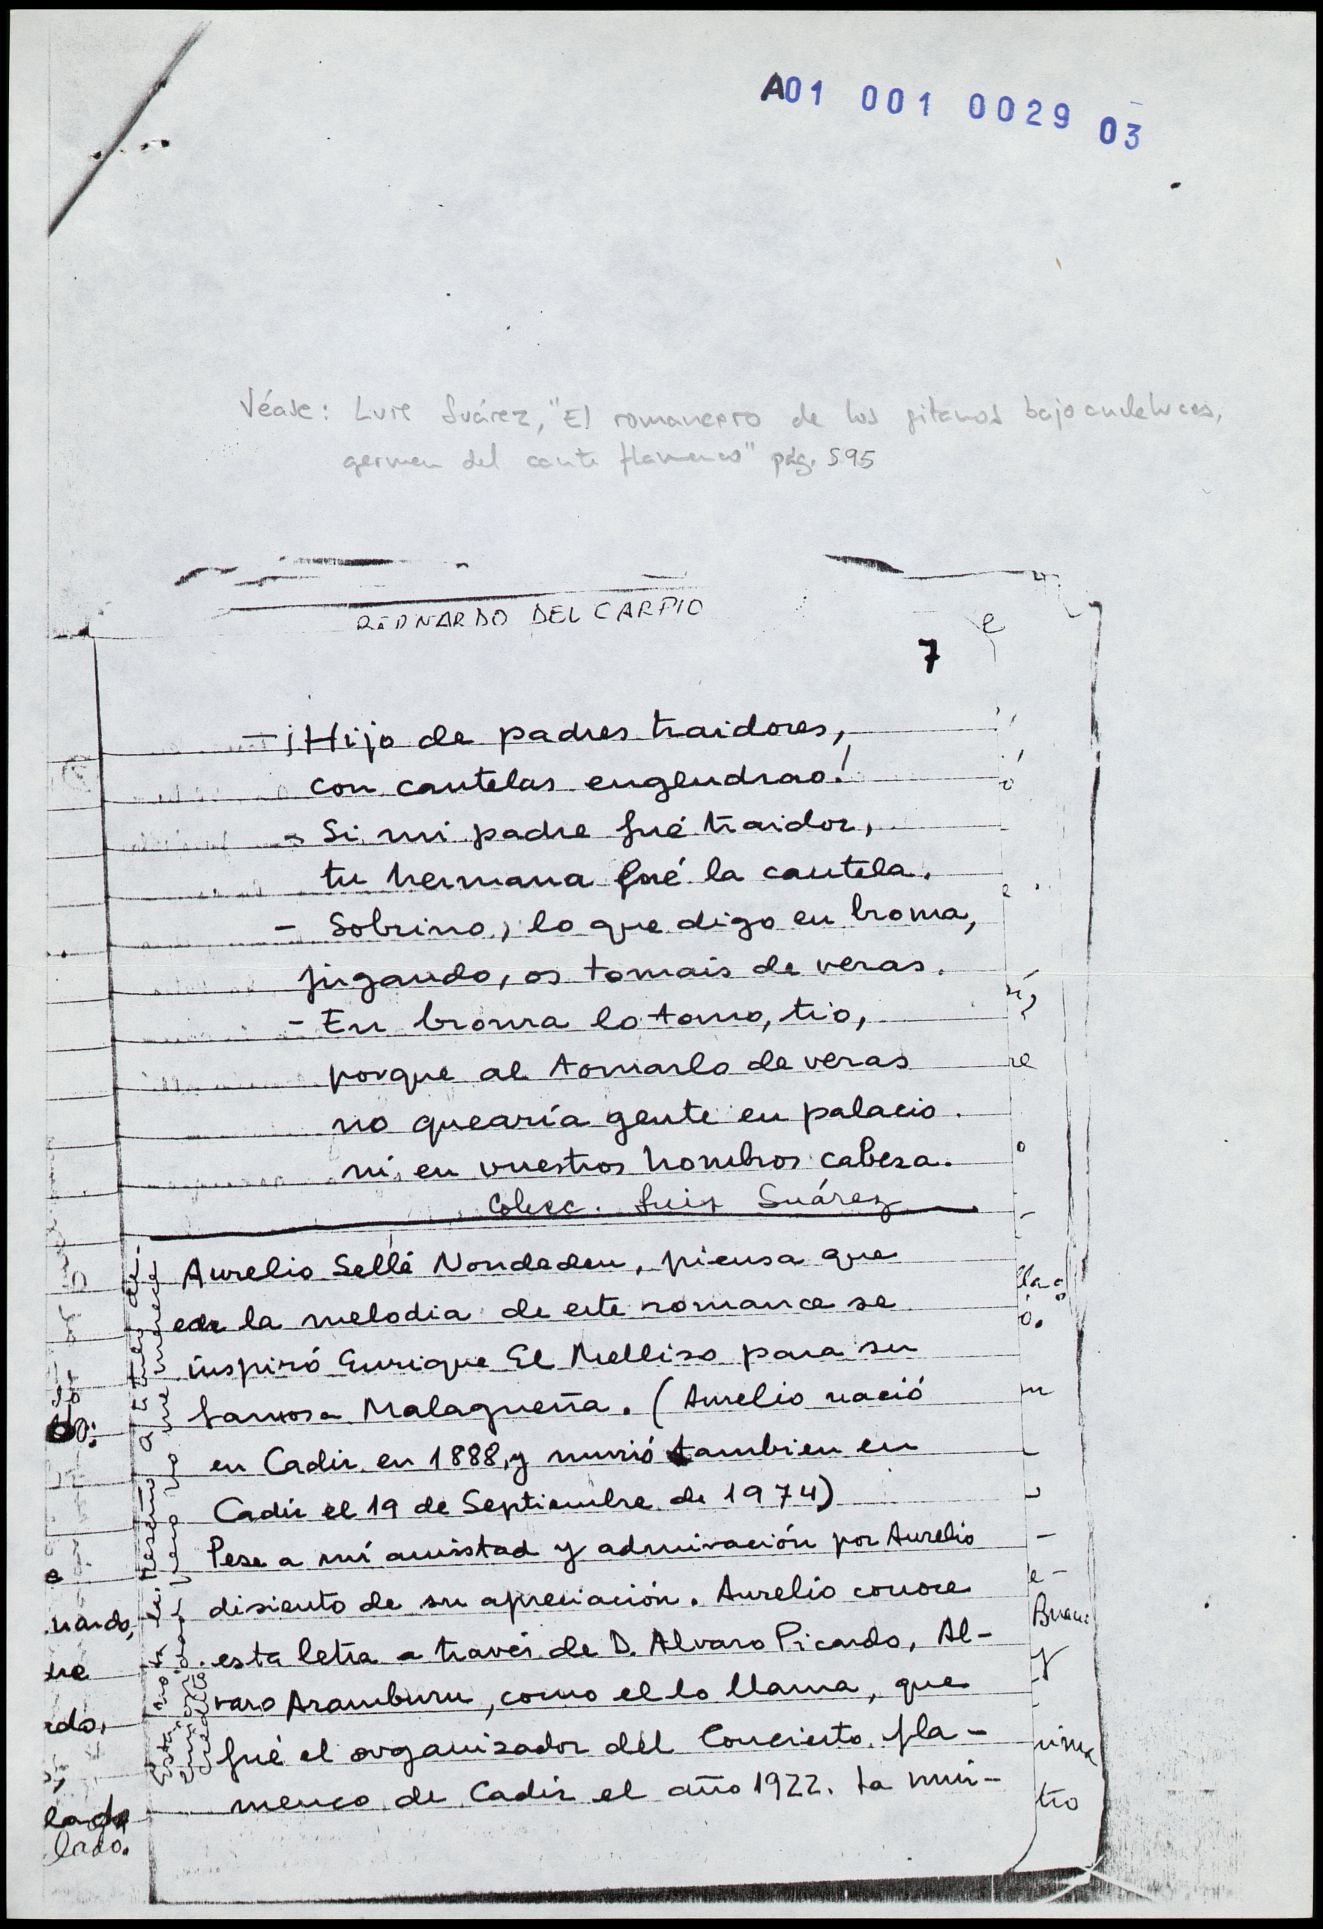 A01 001 0029 03
Véase: Luis Suárez, "El romancero de los gitanos bajoandaluces,
germen del cante flamenco" pág. 595
BERNARDO DEL CARPIO
7
e
- ¡Hijo de padres traidores,
con cautelas engendrao!
- Si mi padre fué traidor,
tu hermana fué la cautela.
- Sobrino, lo que digo en broma,
jugando, os tomais de veras.
- En broma lo tomo, tio,
porque al tomarlo de veras
no quearía gente en palacio
ni en vuestros hombros cabeza.
Colecc. Luis Suárez
Aurelio Sellé Nondedeu, piensa que
en la melodia de este romance se
inspiró Enrique El Mellizo para su
famosa Malagueña. (Aurelio nació
en Cadiz en 1888, y murió tambien en
Cadiz el 19 de Septiembre de 1974)
Pese a mi amistad y admiración por Aurelio
disiento de su apreciación. Aurelio conoce
esta letra a través de D. Alvaro Picardo, Al-
varo Aramburu, como el lo llama, que
fué el organizador del Concierto fla-
menco de Cadiz el año 1922. La mui-
Esta nota la reseño a titulo de
pero no me merece
credito
nardo,
rdo,
lado
lado.
re
tro